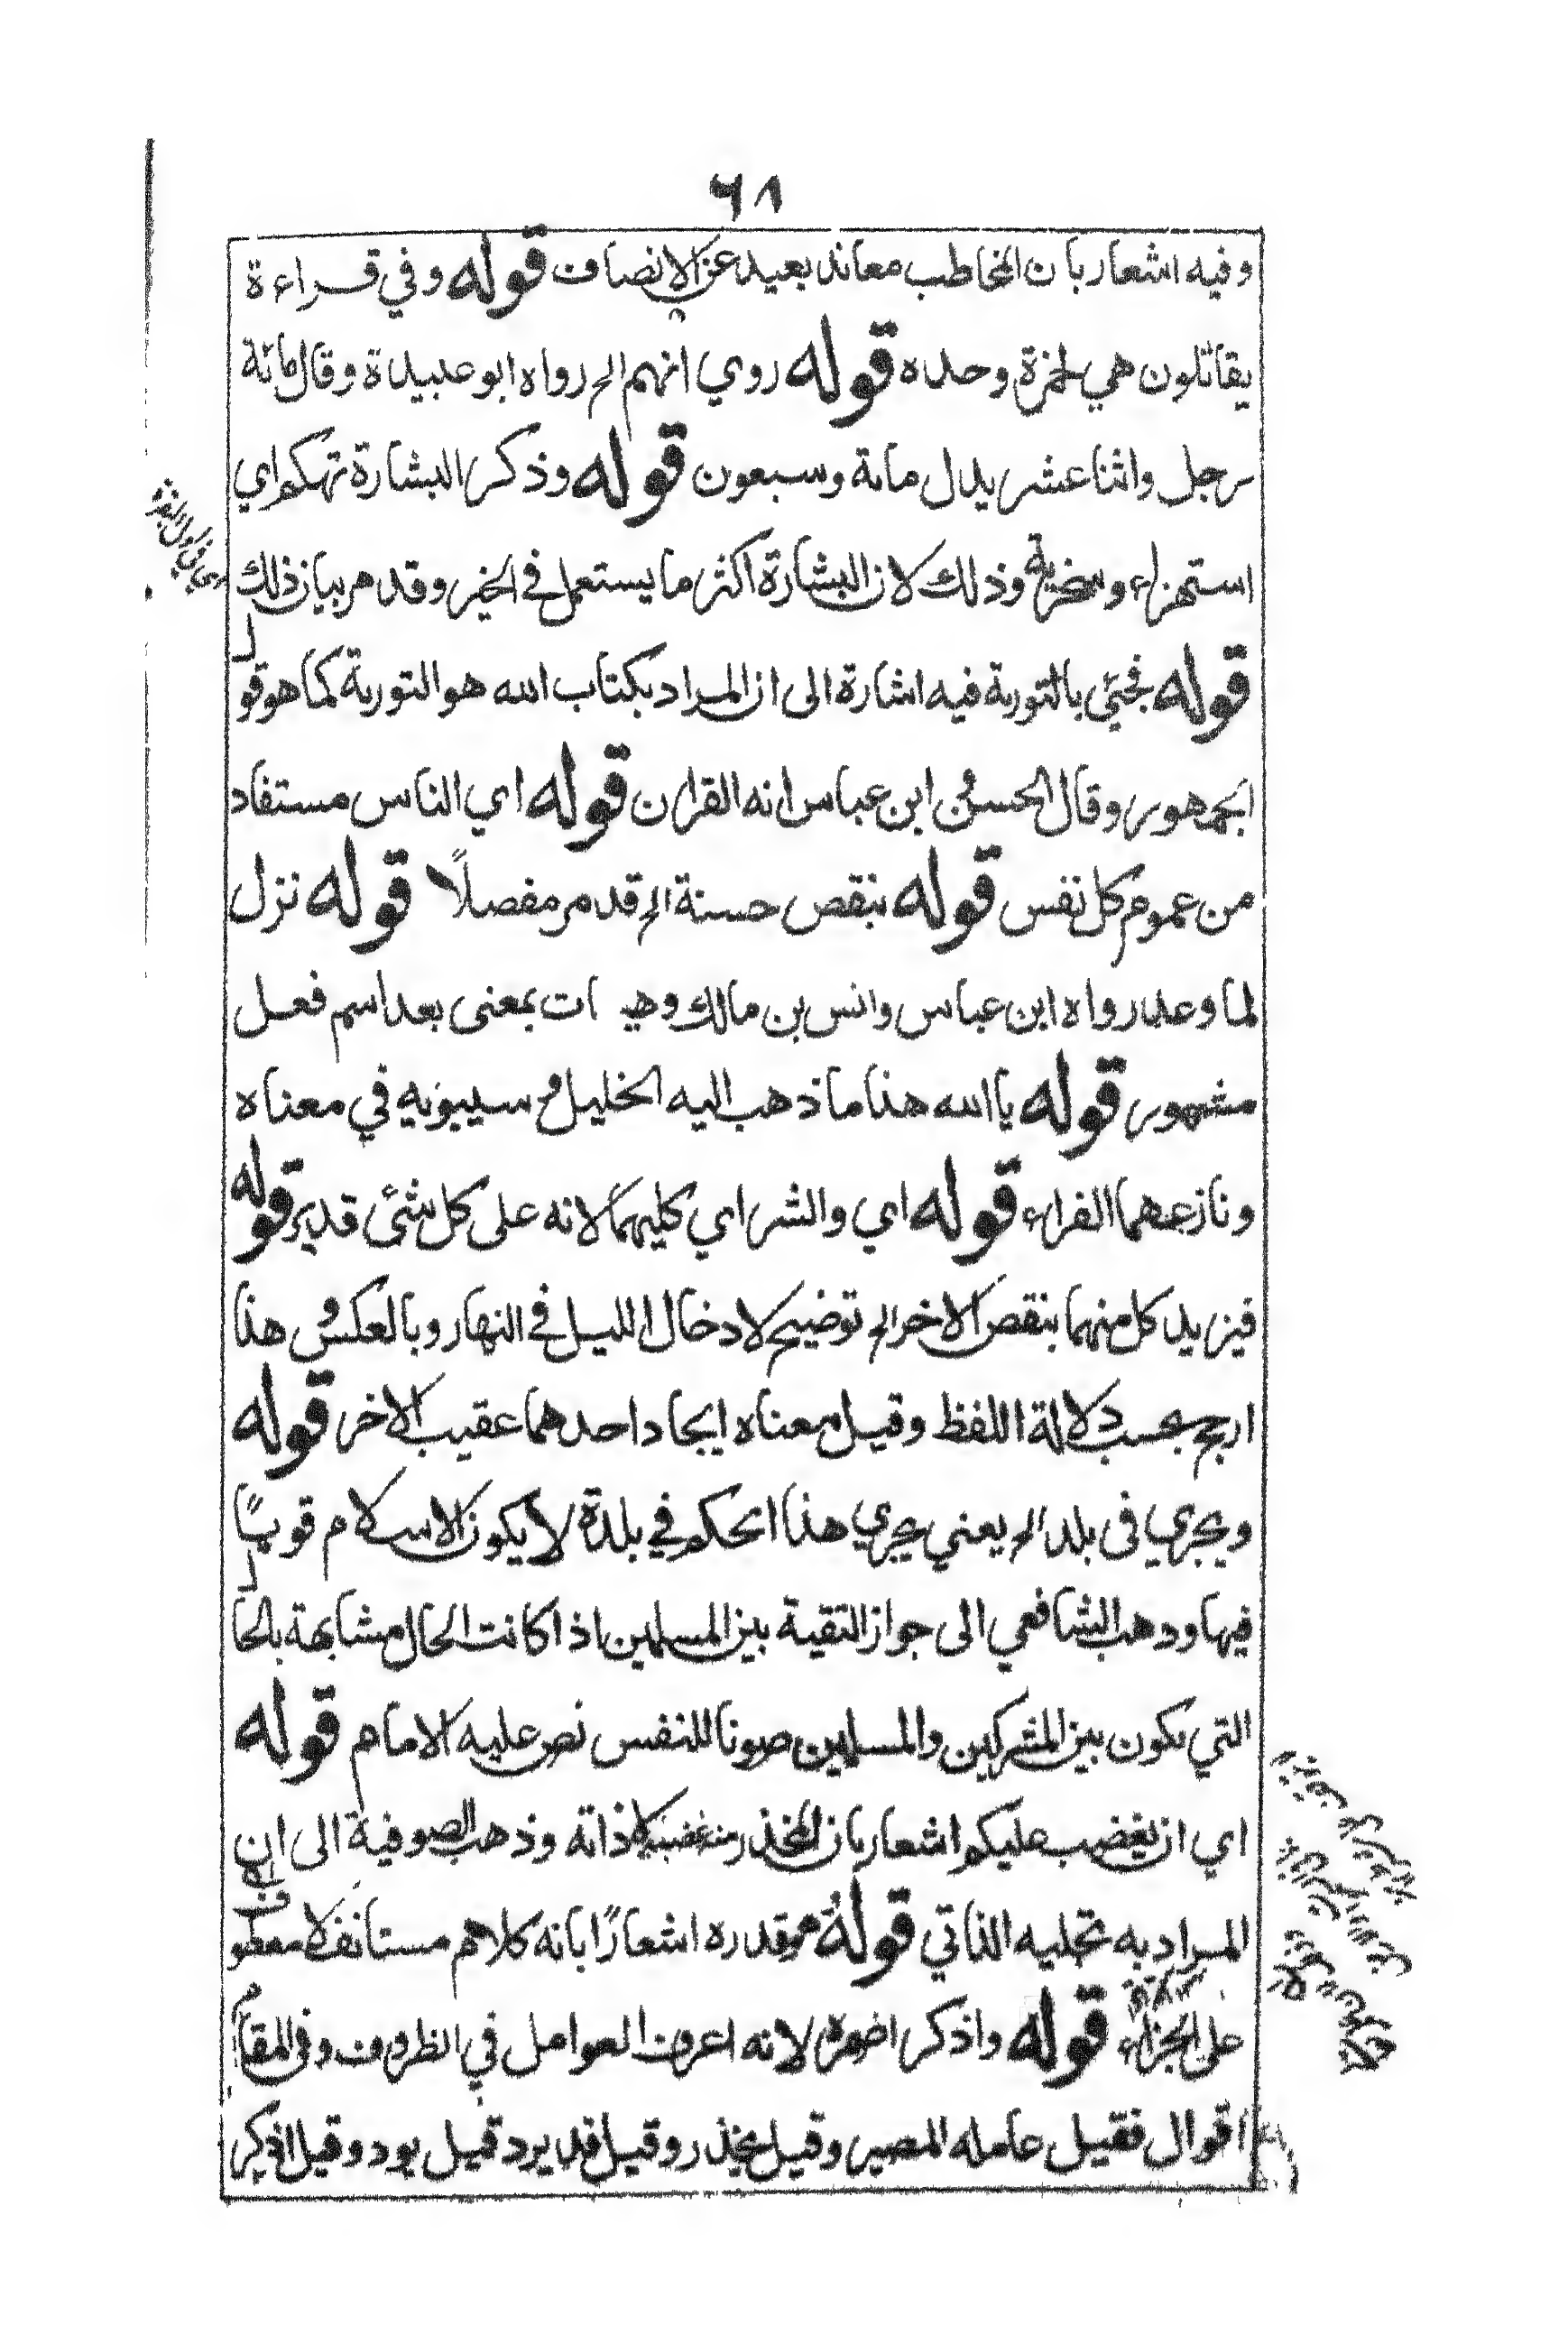 ٦٨
وفيه اشعار بان المخاطب معاند بعيد عن الانصاف قوله وفي قراءة
يقاتلون هي لحمزة وحده قوله روي انهم الخ رواه ابو عبيدة وقال مائة
رجل واثنا عشر بدل مائة وسبعون قوله وذكر البشارة تهكم اي
استهزاء وسخرية وذلك لان البشارة اكثر ما يستعمل في الخير وقد مر بيان ذلك
قوله فجيئ بالتورية فيه اشارة الى ان المراد بكتاب الله هو التورية كما هو قول
الجمهور وقال الحسن عن ابن عباس انه القران قوله اي الناس مستفاد
من عموم كل نفس قوله بنقص حسنة الخ قد مر مفصلاً قوله نزل
لما وعد رواه ابن عباس وانس بن مالك وهيهات بمعنى بعد اسم فعل
مشهور قوله يا الله هذا ما ذهب اليه الخليل و سيبويه في معناه
ونازعهما الفراء قوله اي والشر اي كليهما لانه على كل شئ قدير قوله
فيزيد كل منهما بنقص الاخر الخ توضيح لادخال الليل في النهار وبالعكس و هذا
ارجح بحسب دلالة اللفظ وقيل معناه ايجاد احدهما عقيب الاخر قوله
ويجري فى بلد الخ يعني يجري هذا الحكم في بلدة لا يكون الاسلام قوياً
فيها وذهب الشافعي الى جواز التقية بين المسلمين اذا كانت الحال مشابهة بالحال
التي يكون بين المشركين والمسلمين صونا للنفس نص عليه الامام قوله
اي ان يغضب عليكم اشعار بان المحذر منه غضبه لا ذاته وذهب الصوفية الى ان
المراد به تجليه الذاتي قوله مقدره اشعارًا بانه كلام مستانف لا معطوف
على الجزاء قوله واذكر اضمره لانه اعرف العوامل في الظروف وفى المقام
اقوال فقيل عامله المصير وقيل يحذر وقيل قدير وقيل يود وقيل اذكر